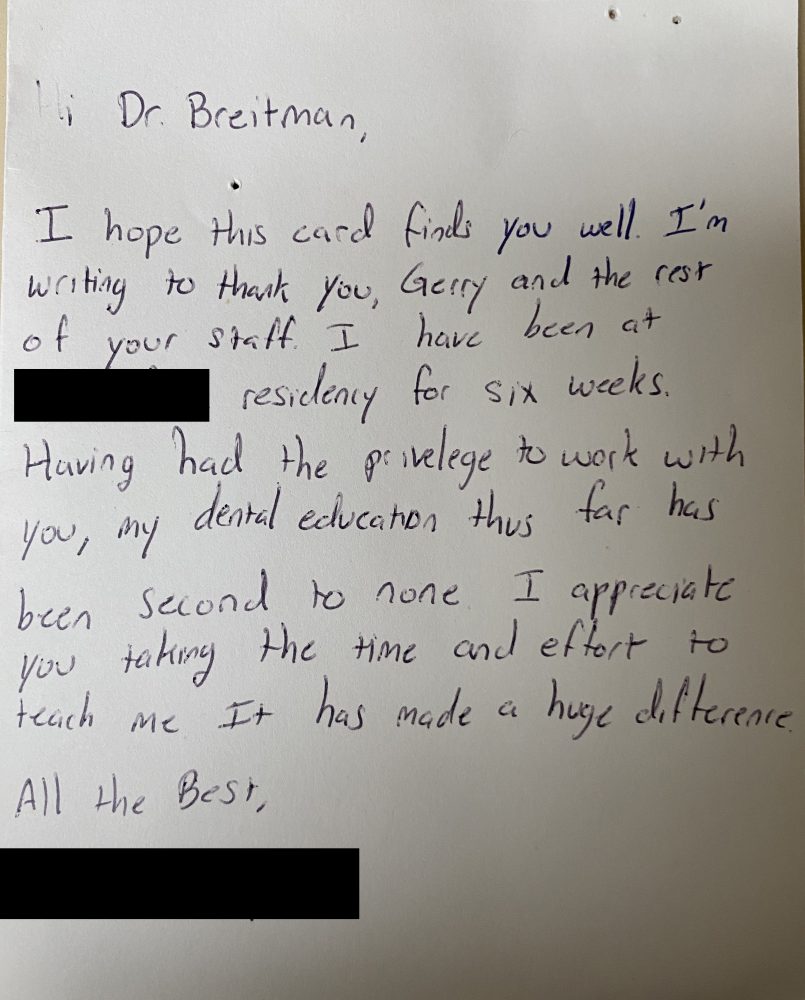 Hi Dr. Breitman,
I hope this card finds you well. I'm
writing to thank you, Gerry and the rest
of your staff. I have been at
residency for six weeks.
Having had the privelege to work with
you, my dental education thus far has
been second to none. I appreciate
you taking the time and effort to
teach me. It has made a huge difference.
All the Best,